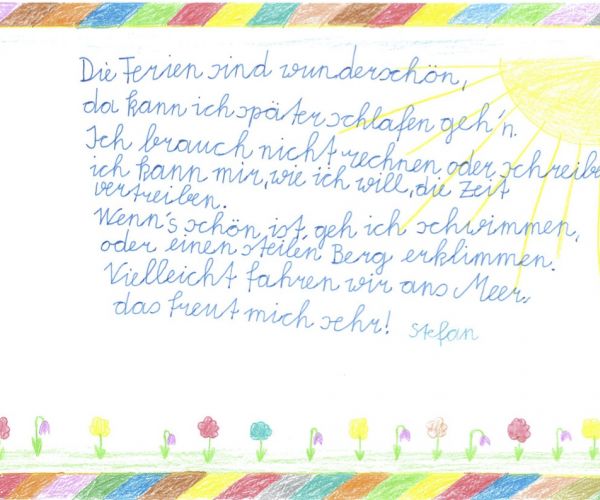 Die Ferien sind wunderschön,
da kann ich später schlafen geh'n.
Ich brauch nicht rechnen oder schreibe
ich kann mir, wie ich will, die Zeit
vertreiben.
Wenn's schön ist, geh ich schwimmen,
oder einen steilen Berg erklimmen.
Vielleicht fahren wir ans Meer,
das freut mich sehr! Stefan